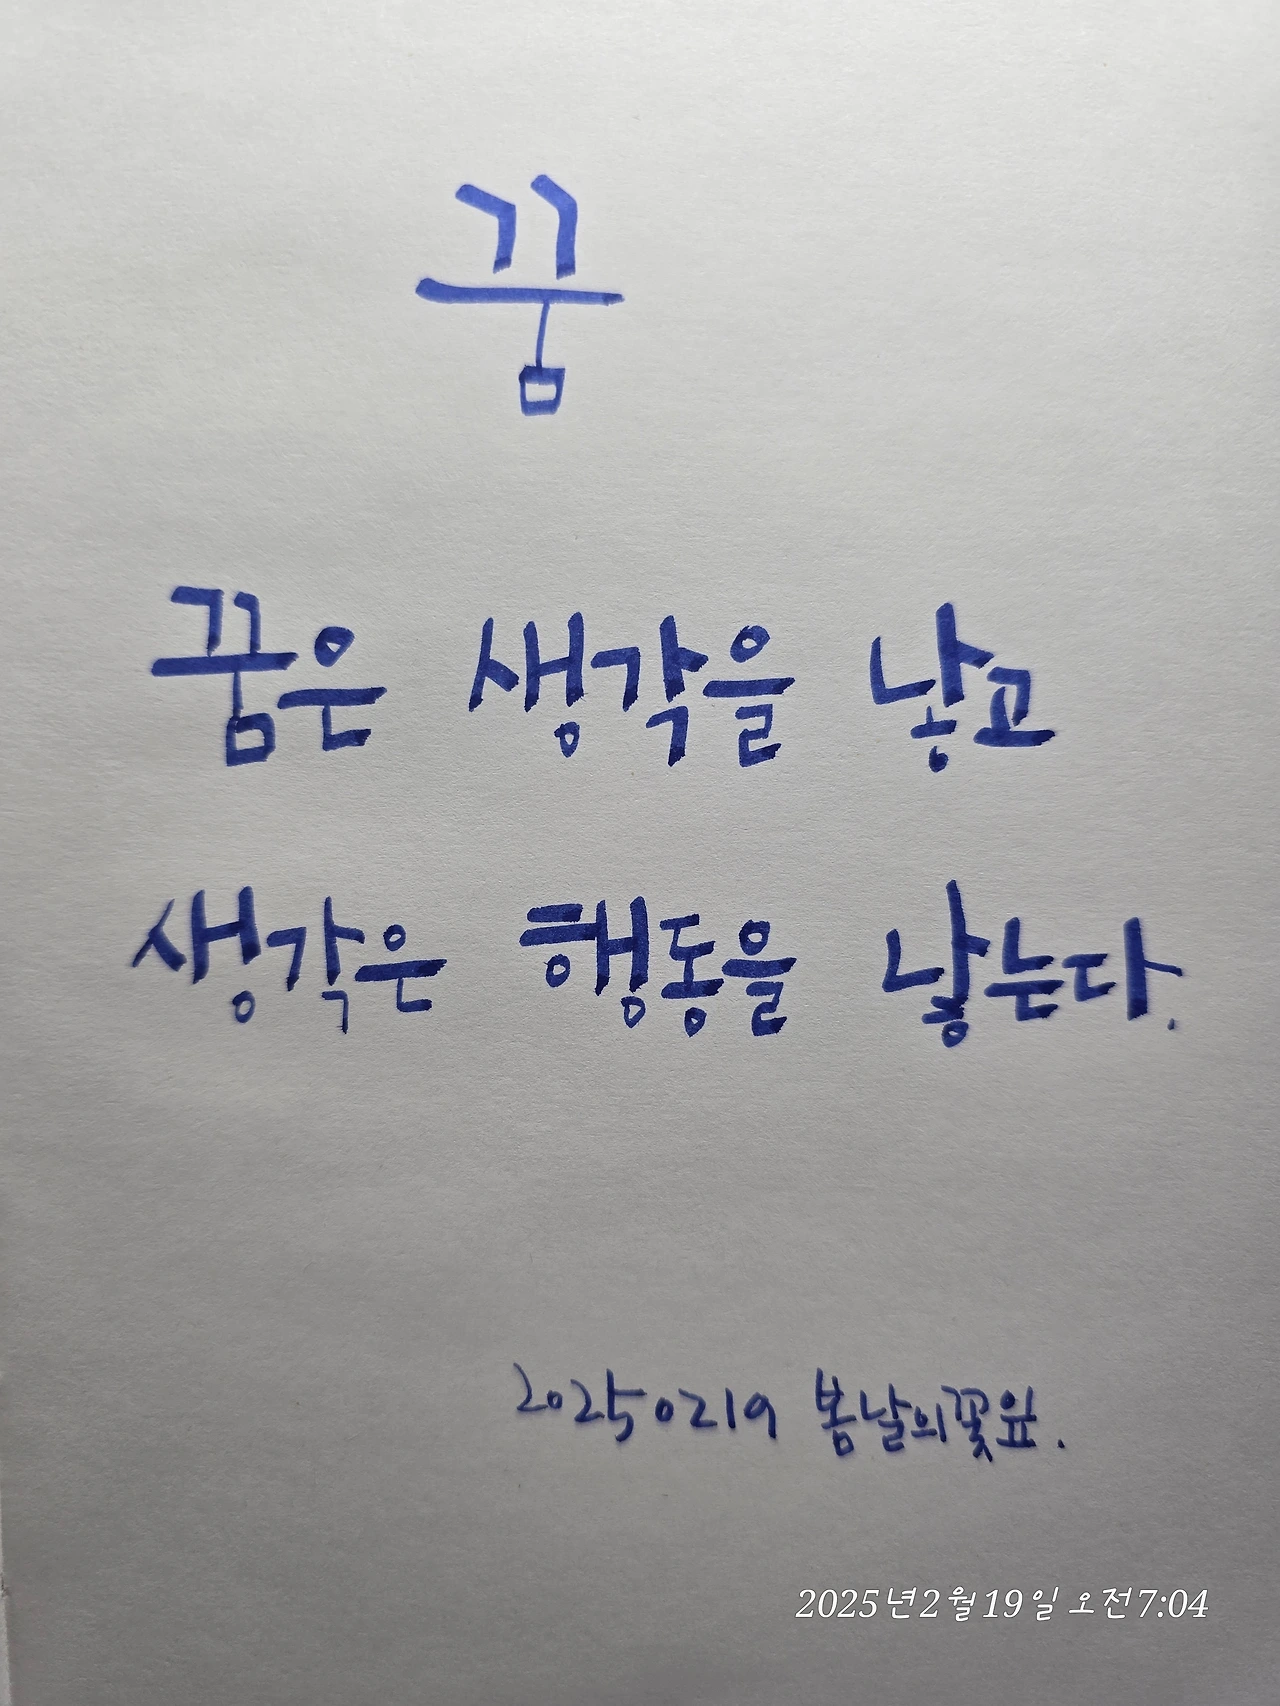 꿈
꿈은 생각을 낳고
생각은 행동을 낳는다.
20250219 봄날의꽃잎.
2025년2월19일 오전7:04